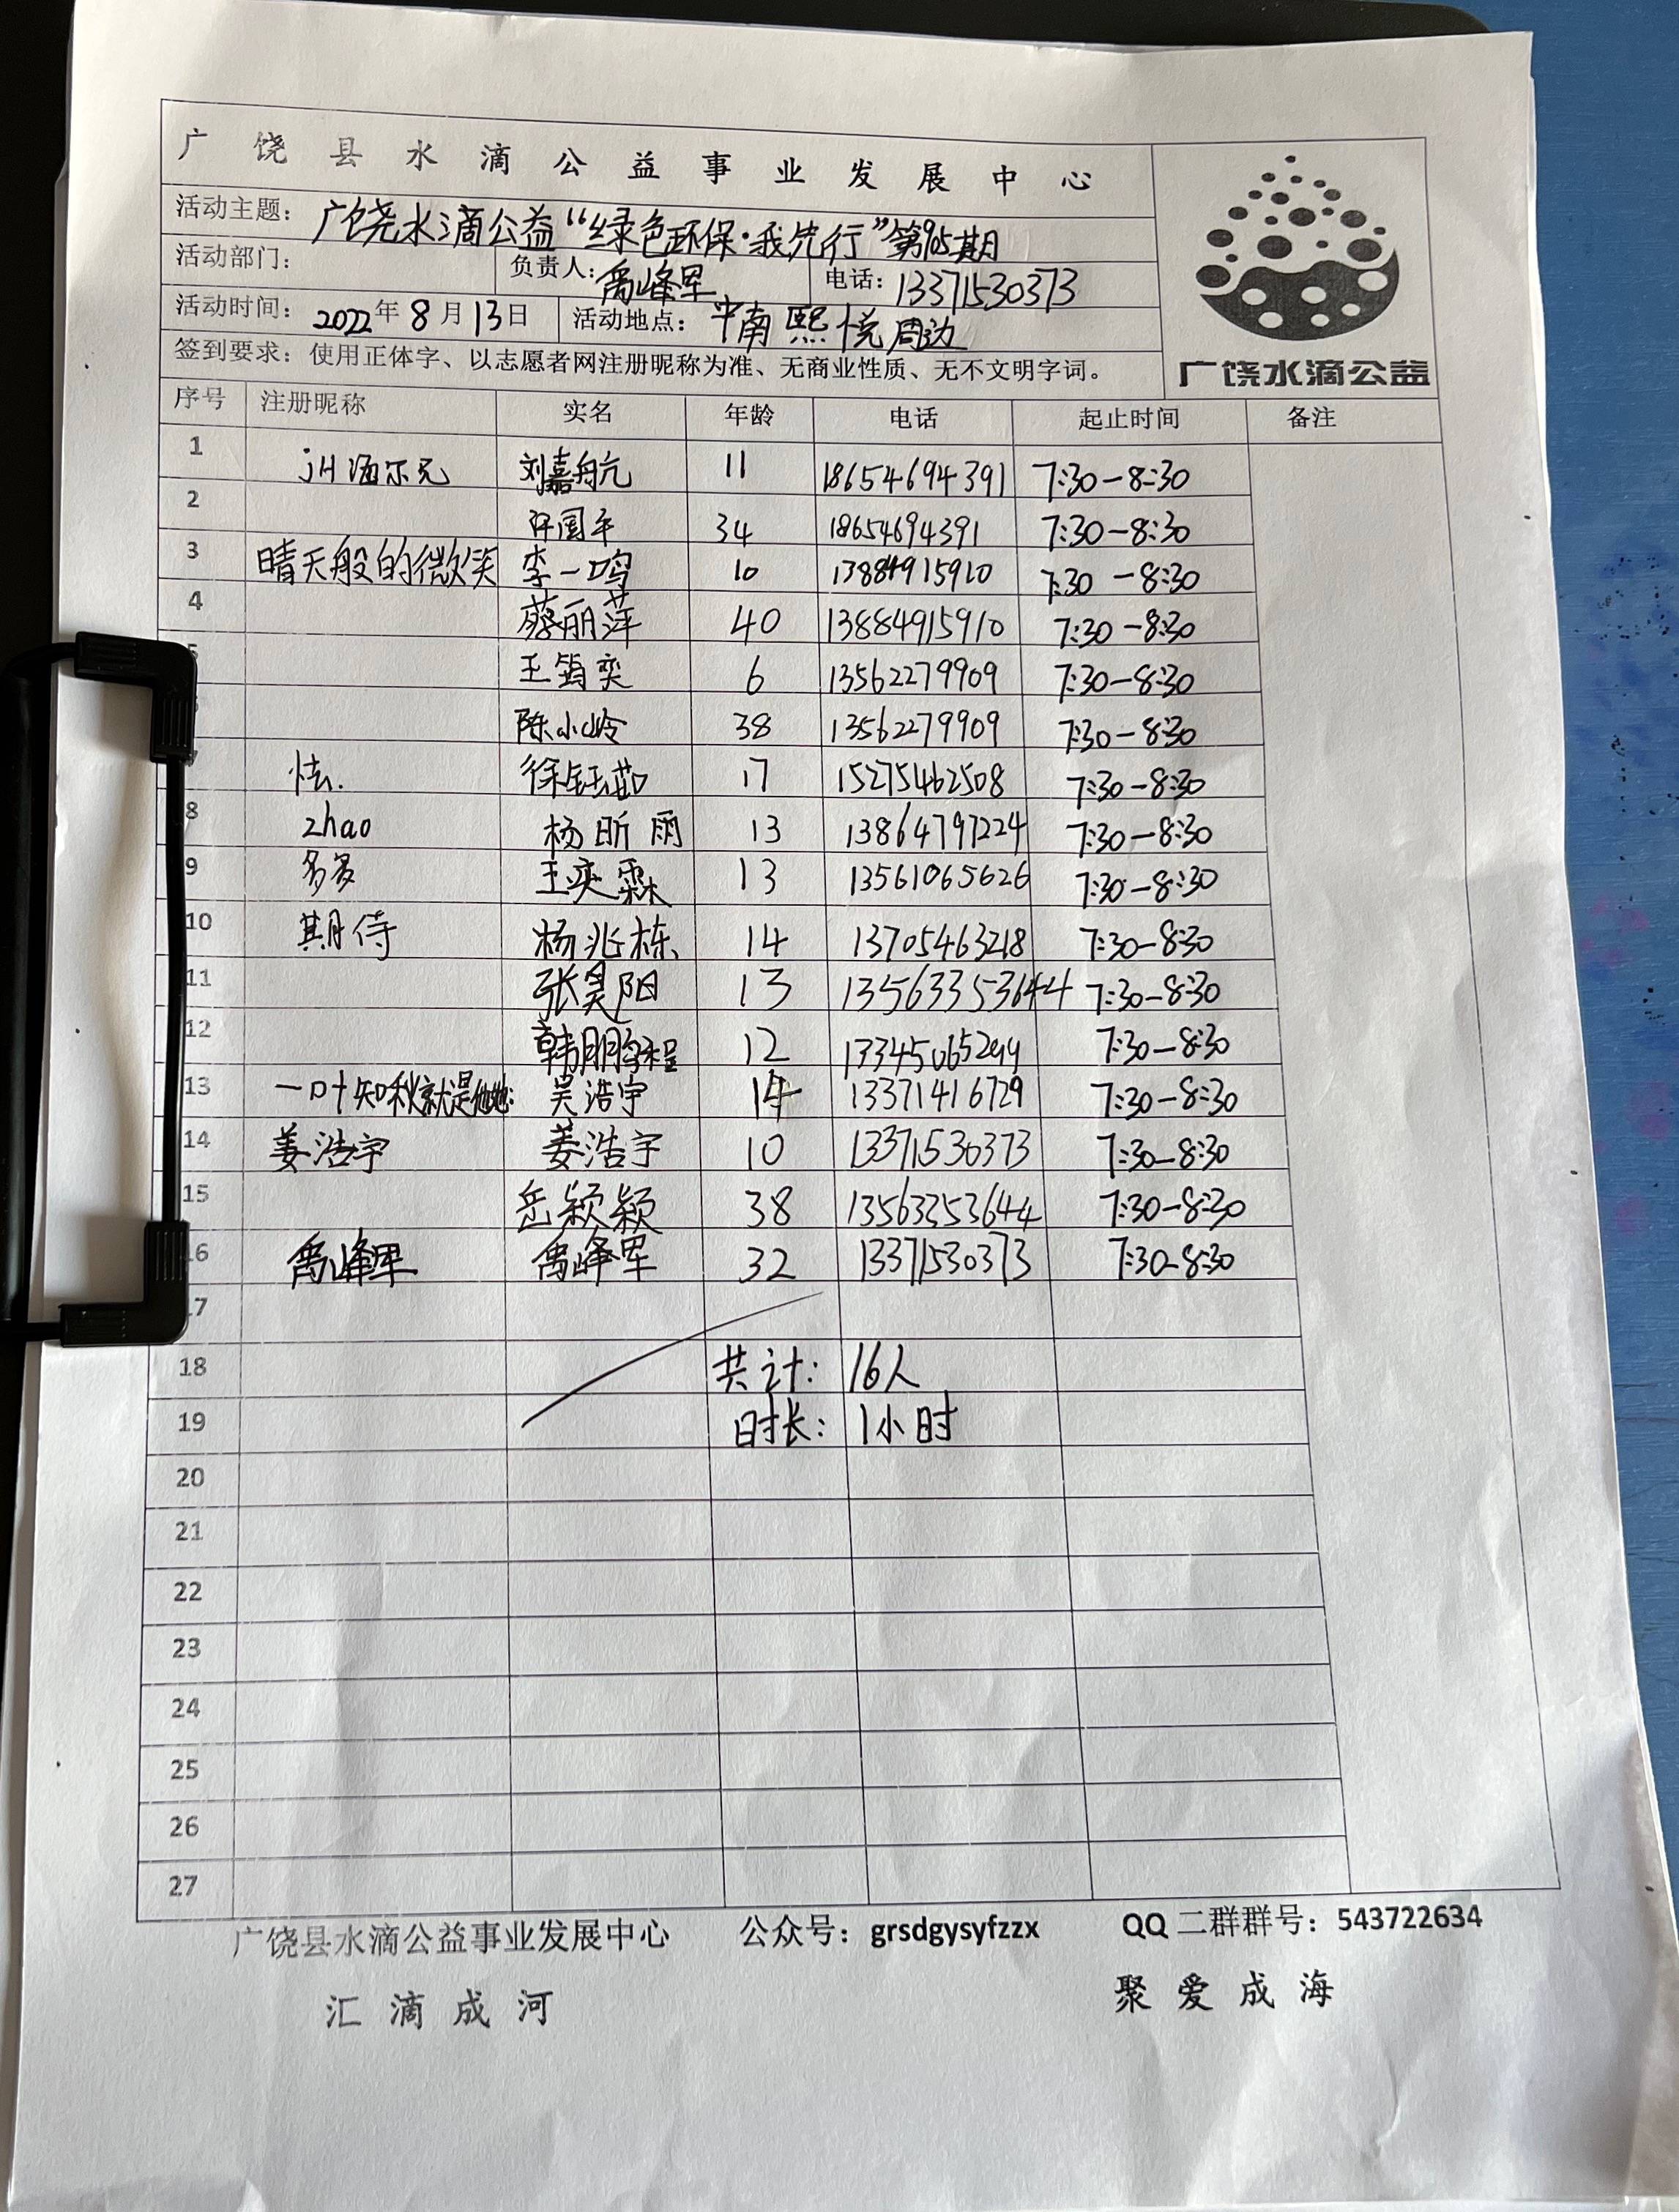 广饶县水滴公益事业发展中心
活动主题：广饶水滴公益“绿色环保·我先行”第905期
活动部门： 负责人：禹峰军 电话：13371530373
活动时间：2022年8月13日 活动地点：中南熙悦周边
签到要求：使用正体字、以志愿者网注册昵称为准、无商业性质、无不文明字词。
广饶水滴公益
序号 注册昵称 实名 年龄 电话 起止时间 备注
1 刘嘉航 11 18654694391 7:30-8:30
2 34 18654694391 7:30-8:30
3 晴天般的微笑 李一鸣 10 13884915910 7:30-8:30
4 蔡丽萍 40 13884915910 7:30-8:30
5 王筠奕 6 13562279909 7:30-8:30
陈小岭 38 13562279909 7:30-8:30
7 怯. 徐钰茹 17 15275462508 7:30-8:30
8 zhao 杨昕雨 13 13864797224 7:30-8:30
9 多多 王奕霖 13 13561065626 7:30-8:30
10 期待 杨兆栋 14 13705463218 7:30-8:30
11 张昊阳 13 13563353644 7:30-8:30
12 韩鹏程 12 7:30-8:30
13 一叶知秋就是他她: 吴浩宇 14 13371416729 7:30-8:30
14 姜浩宇 姜浩宇 10 13371530373 7:30-8:30
15 岳颖颖 38 13563353644 7:30-8:30
16 禹峰军 禹峰军 32 13371530373 7:30-8:30
17
18 共计： 16人
19 时长： 1小时
20
21
22
23
24
25
26
27
广饶县水滴公益事业发展中心 公众号：grsdgysyfzzx QQ 二群群号：543722634
汇滴成河 聚爱成海